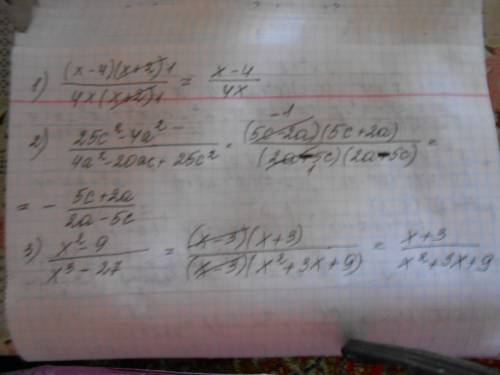 1) \frac{(x-4)(x+2)1}{4x(x+2)1} = \frac{x-4}{4x}
2) \frac{25c^2-4a^2}{4a^2-20ac+25c^2} = \frac{(5c-2a)^{-1}(5c+2a)}{(2a-5c)_1(2a-5c)} =
= - \frac{5c+2a}{2a-5c}
3) \frac{x^2-9}{x^3-27} = \frac{(x-3)(x+3)}{(x-3)(x^2+3x+9)} = \frac{x+3}{x^2+3x+9}